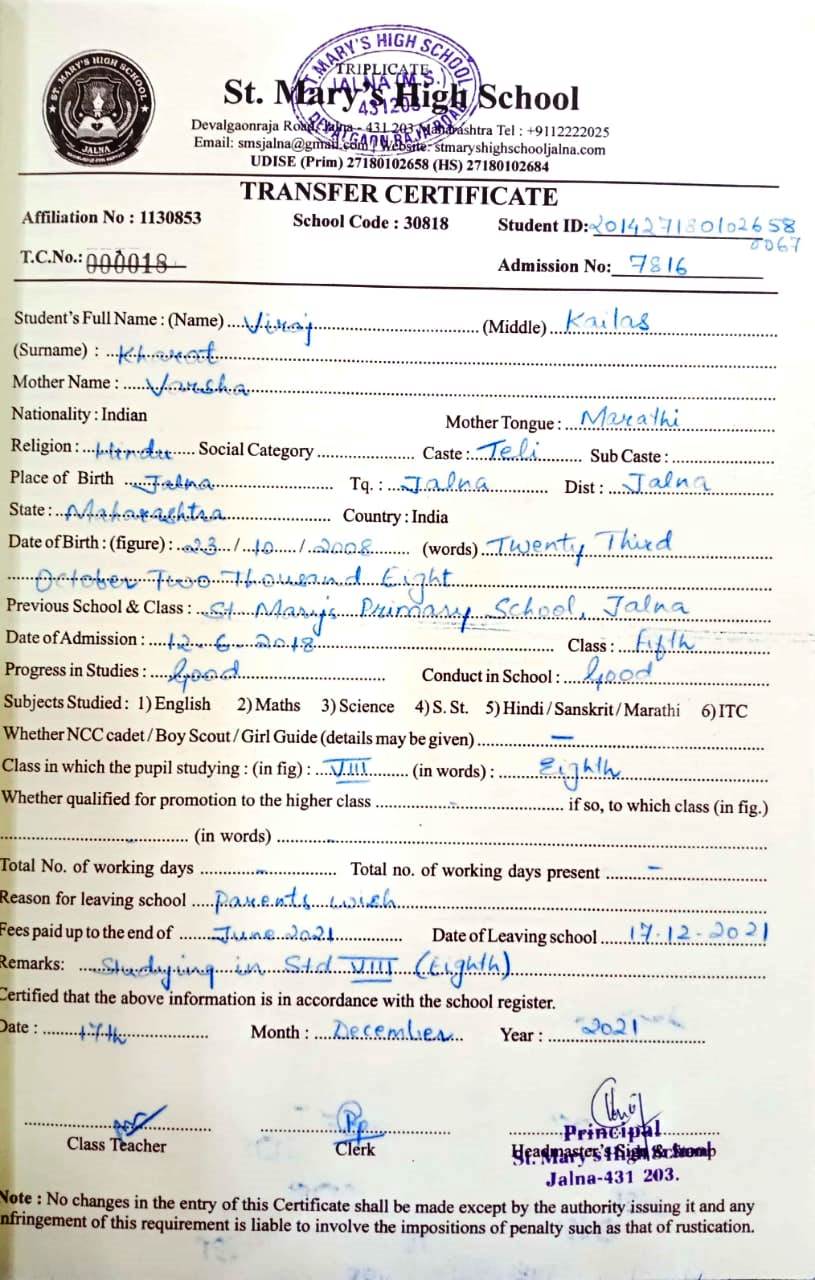 ST. MARY'S HIGH SCHOOL
JALNA
ST. MARY'S HIGH SCHOOL
JALNA (M.S.)
431203
DEVALGAONRAJA ROAD
TRIPLICATE
St. Mary's High School
Devalgaonraja Road, Jalna - 431 203 Maharashtra Tel : +9112222025
Email: smsjalna@gmail.com | Website: stmaryshighschooljalna.com
UDISE (Prim) 27180102658 (HS) 27180102684
TRANSFER CERTIFICATE
Affiliation No : 1130853 School Code : 30818 Student ID: 201427180102658
0067
T.C.No.: 000018 Admission No: 7816
Student's Full Name : (Name) Viraj (Middle) Kailas
(Surname) : Kharat
Mother Name : Varsha
Nationality : Indian Mother Tongue : Marathi
Religion : Hindu Social Category Caste : Teli Sub Caste :
Place of Birth Jalna Tq. : Jalna Dist : Jalna
State : Maharashtra Country : India
Date of Birth : (figure) : 23 / 10 / 2008 (words) Twenty Third
October Two Thousand Eight
Previous School & Class : St. Mary's Primary School, Jalna
Date of Admission : 12-6-2018 Class : Fifth
Progress in Studies : Good Conduct in School : Good
Subjects Studied : 1) English 2) Maths 3) Science 4) S. St. 5) Hindi / Sanskrit / Marathi 6) ITC
Whether NCC cadet / Boy Scout / Girl Guide (details may be given) —
Class in which the pupil studying : (in fig) : VIII (in words) : Eighth
Whether qualified for promotion to the higher class - if so, to which class (in fig.)
- (in words) -
Total No. of working days - Total no. of working days present -
Reason for leaving school Parents wish
Fees paid up to the end of June 2021 Date of Leaving school 17-12-2021
Remarks: Studying in Std VIII (Eighth)
Certified that the above information is in accordance with the school register.
Date : 17th Month : December Year : 2021
Class Teacher Clerk Headmaster's Sign & Stamp
Principal
St. Mary's High School
Jalna-431 203.
Note : No changes in the entry of this Certificate shall be made except by the authority issuing it and any
nfringement of this requirement is liable to involve the impositions of penalty such as that of rustication.